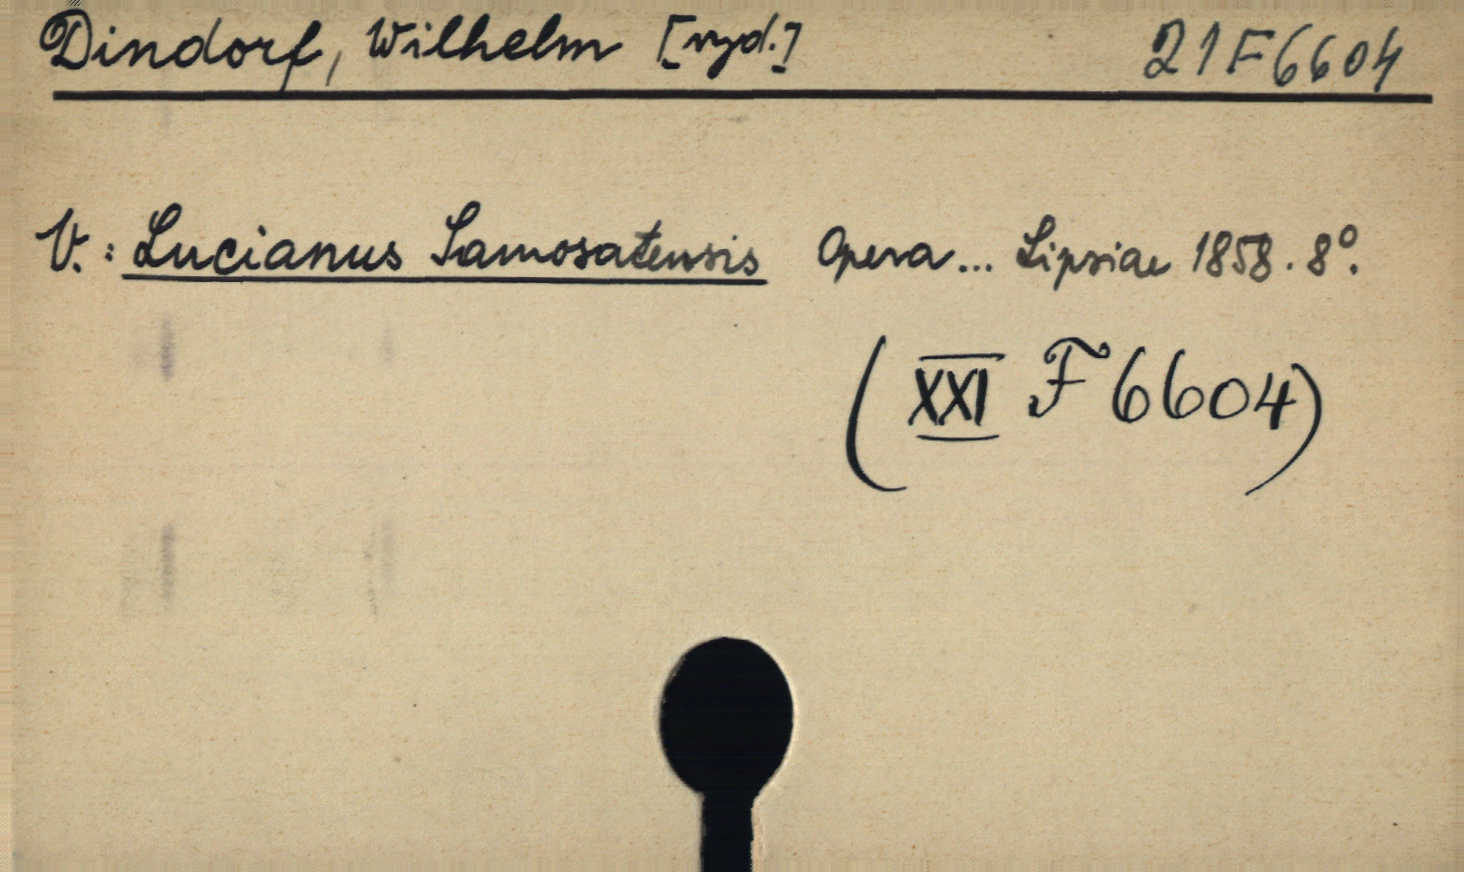 Dindorf, Wilhelm [vyd.] 21 F 6604
V.: Lucianus Samosatensis Opera... Lipsiae 1858. 8°.
(XXI F 6604)